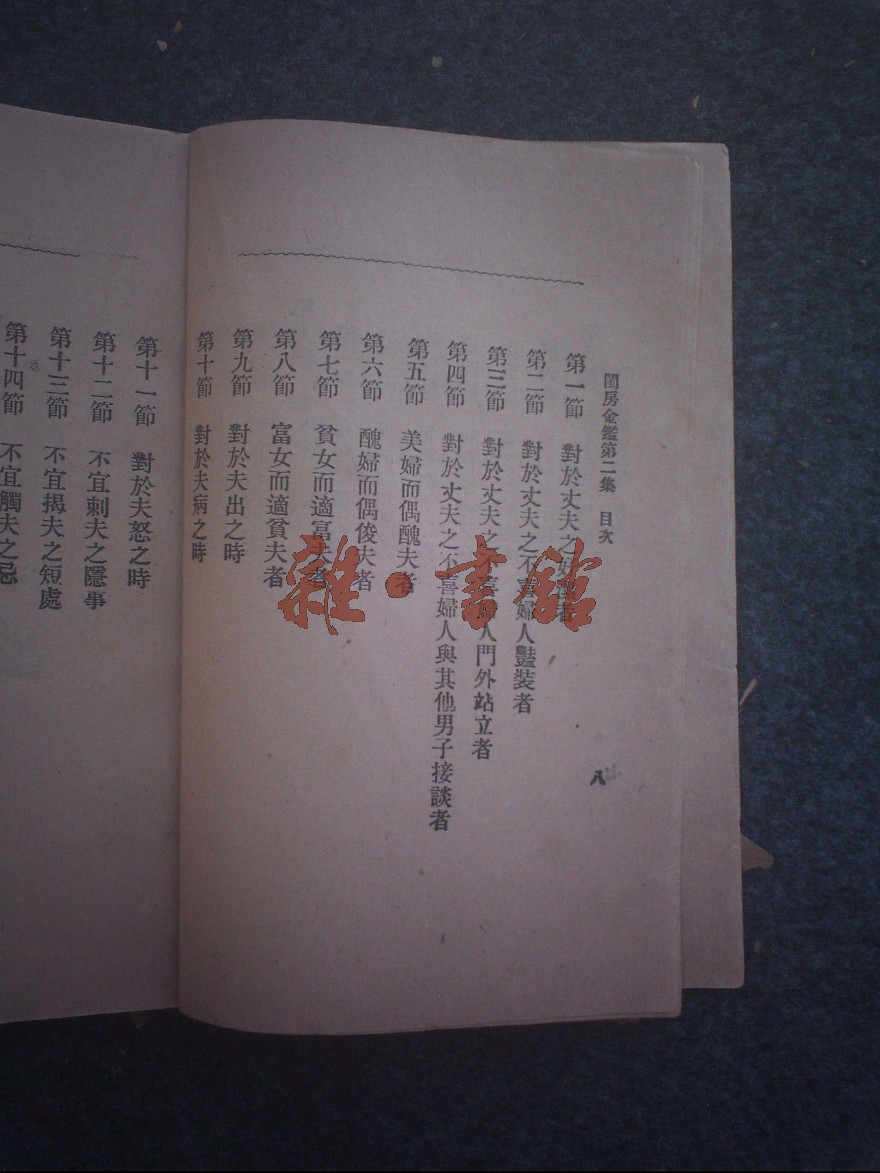 閨房金鑑第二集　目次
第一節　對於丈夫之好潔者
第二節　對於丈夫之不喜婦人豔裝者
第三節　對於丈夫之不喜婦人門外站立者
第四節　對於丈夫之不喜婦人與其他男子接談者
第五節　美婦而偶醜夫者
第六節　醜婦而偶俊夫者
第七節　貧女而適富夫者
第八節　富女而適貧夫者
第九節　對於夫出之時
第十節　對於夫病之時
八
第十一節　對於夫怒之時
第十二節　不宜刺夫之隱事
第十三節　不宜揭夫之短處
第十四節　不宜觸夫之忌
雜·書館